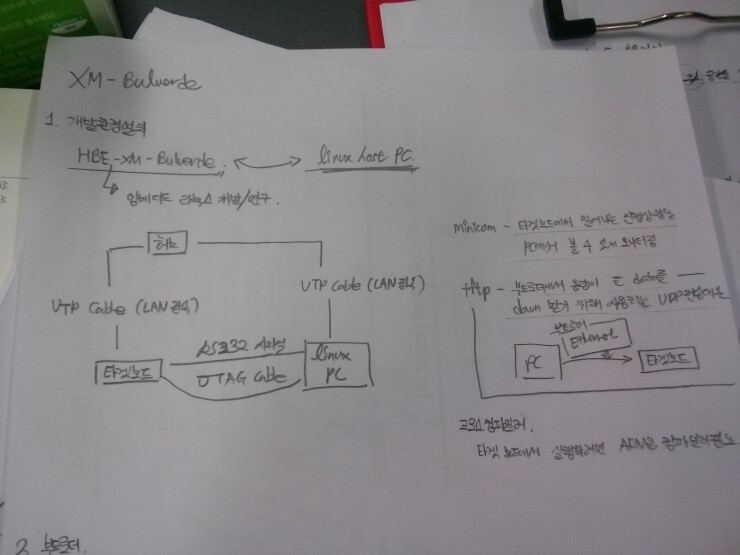 XM-Bulverde
1. 개발환경설치
HBE-XM-Bulverde. linux host PC.
임베디드 리눅스 개발/연구.
허브
UTP Cable (LAN 공유)
UTP Cable (LAN 공유)
RS232 시리얼
JTAG Cable
타겟보드
linux
PC
minicom - 타겟보드에서 일어나는 진행상황을
PC에서 볼 수 있게 모니터링
tftp - 부트로더에서 용량이 큰 data를
down 받기 위해 사용하는 UDP
부트로더
Ethernet
PC
타겟보드
크로스 컴파일러.
타겟 보드에서 실행하려면 ARM용 컴파일러필요
2. 부트로더.